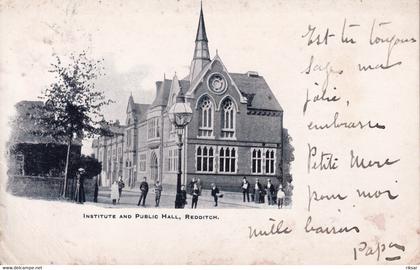 INSTITUTE AND PUBLIC HALL, REDDITCH.
Est tu toujours
sage ma
joie,
embrasse
Petite Mere
pour moi
mille baisers
Papa